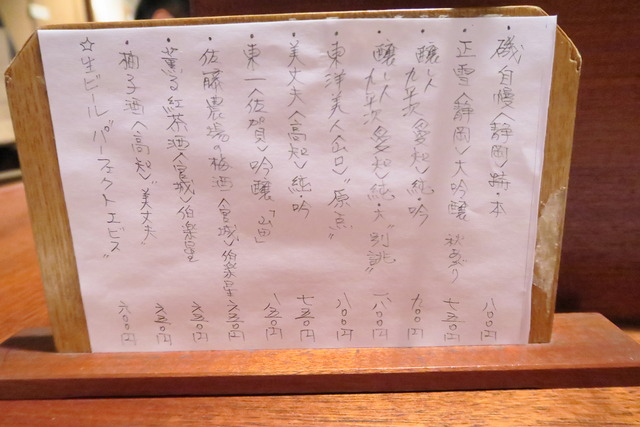 ・磯自慢〈静岡〉特・本 八〇〇円
・正雪〈静岡〉大吟醸 秋あがり 七五〇円
・醸し人九平次〈愛知〉純・吟 九〇〇円
・醸し人九平次〈愛知〉純・大"別誂" 一八〇〇円
・東洋美人〈山口〉"原点" 八〇〇円
・美丈夫〈高知〉純・吟 七五〇円
・東一〈佐賀〉吟醸「山田」 八五〇円
・佐藤農場の梅酒〈宮城〉伯楽星 六五〇円
・薫る紅茶酒〈宮城〉伯楽星 六五〇円
・柚子酒〈高知〉"美丈夫" 六五〇円
☆生ビール"パーフェクトエビス" 六〇〇円